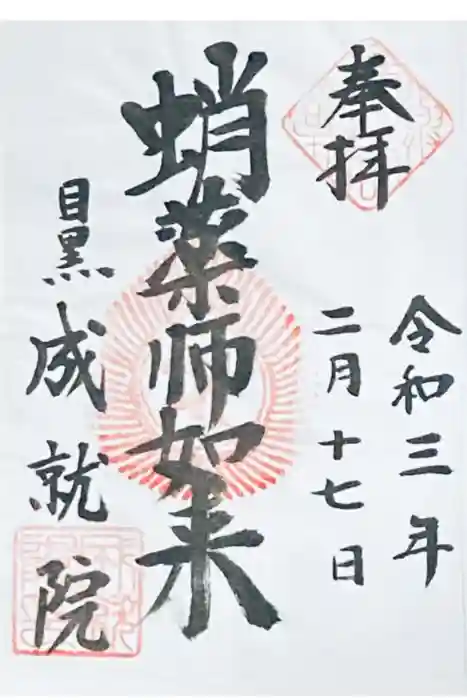 奉拝
令和三年
二月十七日
蛸薬师如来
目黒
成就院